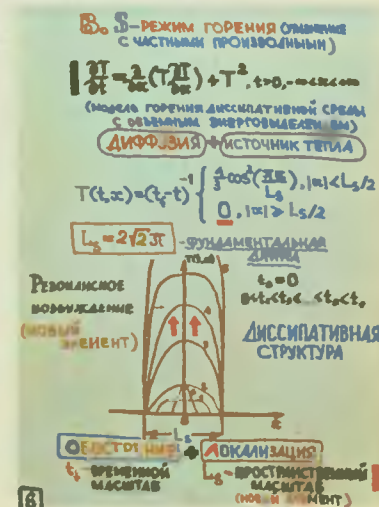 В. S-РЕЖИМ ГОРЕНИЯ (УРАВНЕНИЕ
С ЧАСТНЫМИ ПРОИЗВОДНЫМИ)
∂T/∂t = ∂/∂x (T ∂T/∂x) + T², t>0, -∞<x<+∞
(МОДЕЛЬ ГОРЕНИЯ ДИССИПАТИВНОЙ СРЕДЫ
С ОБЪЕМНЫМ ЭНЕРГОВЫДЕЛЕНИЕМ)
ДИФФУЗИЯ + ИСТОЧНИК ТЕПЛА
T(t,x)=(t_f-t)⁻¹ { 4/3 cos²(πx/L_S), |x|<L_S/2
0, |x|⩾L_S/2
L_S=2√2π - ФУНДАМЕНТАЛЬНАЯ
ДЛИНА
T(t,x)
РЕЗОНАНСНОЕ
ВОЗБУЖДЕНИЕ
(НОВЫЙ
ЭЛЕМЕНТ)
t₀=0
ДИССИПАТИВНАЯ
СТРУКТУРА
L_S
ОБОСТРЕНИЕ + ЛОКАЛИЗАЦИЯ
t_f - ВРЕМЕННОЙ
МАСШТАБ
L_S - ПРОСТРАНСТВЕННЫЙ
МАСШТАБ
(НОВЫЙ ЭЛЕМЕНТ)
6